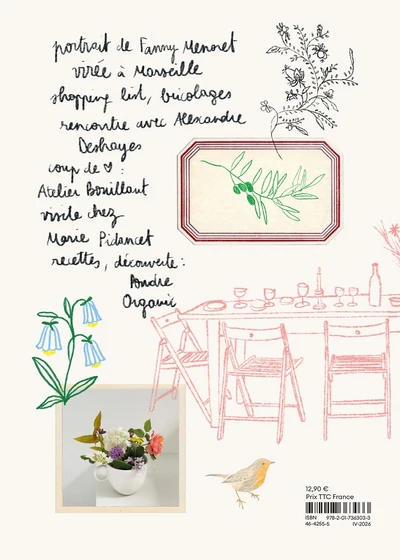 portrait de Fanny Menoret
virée à Marseille
shopping list, bricolages
rencontre avec Alexandre
Deshayes
coup de ♥ :
Atelier Bouillaut
visite chez
Marie Pidancet
recettes, découverte :
Poudre
Organic
12,90 €
Prix TTC France
ISBN 978-2-01-736303-3
46-4255-5 IV-2026